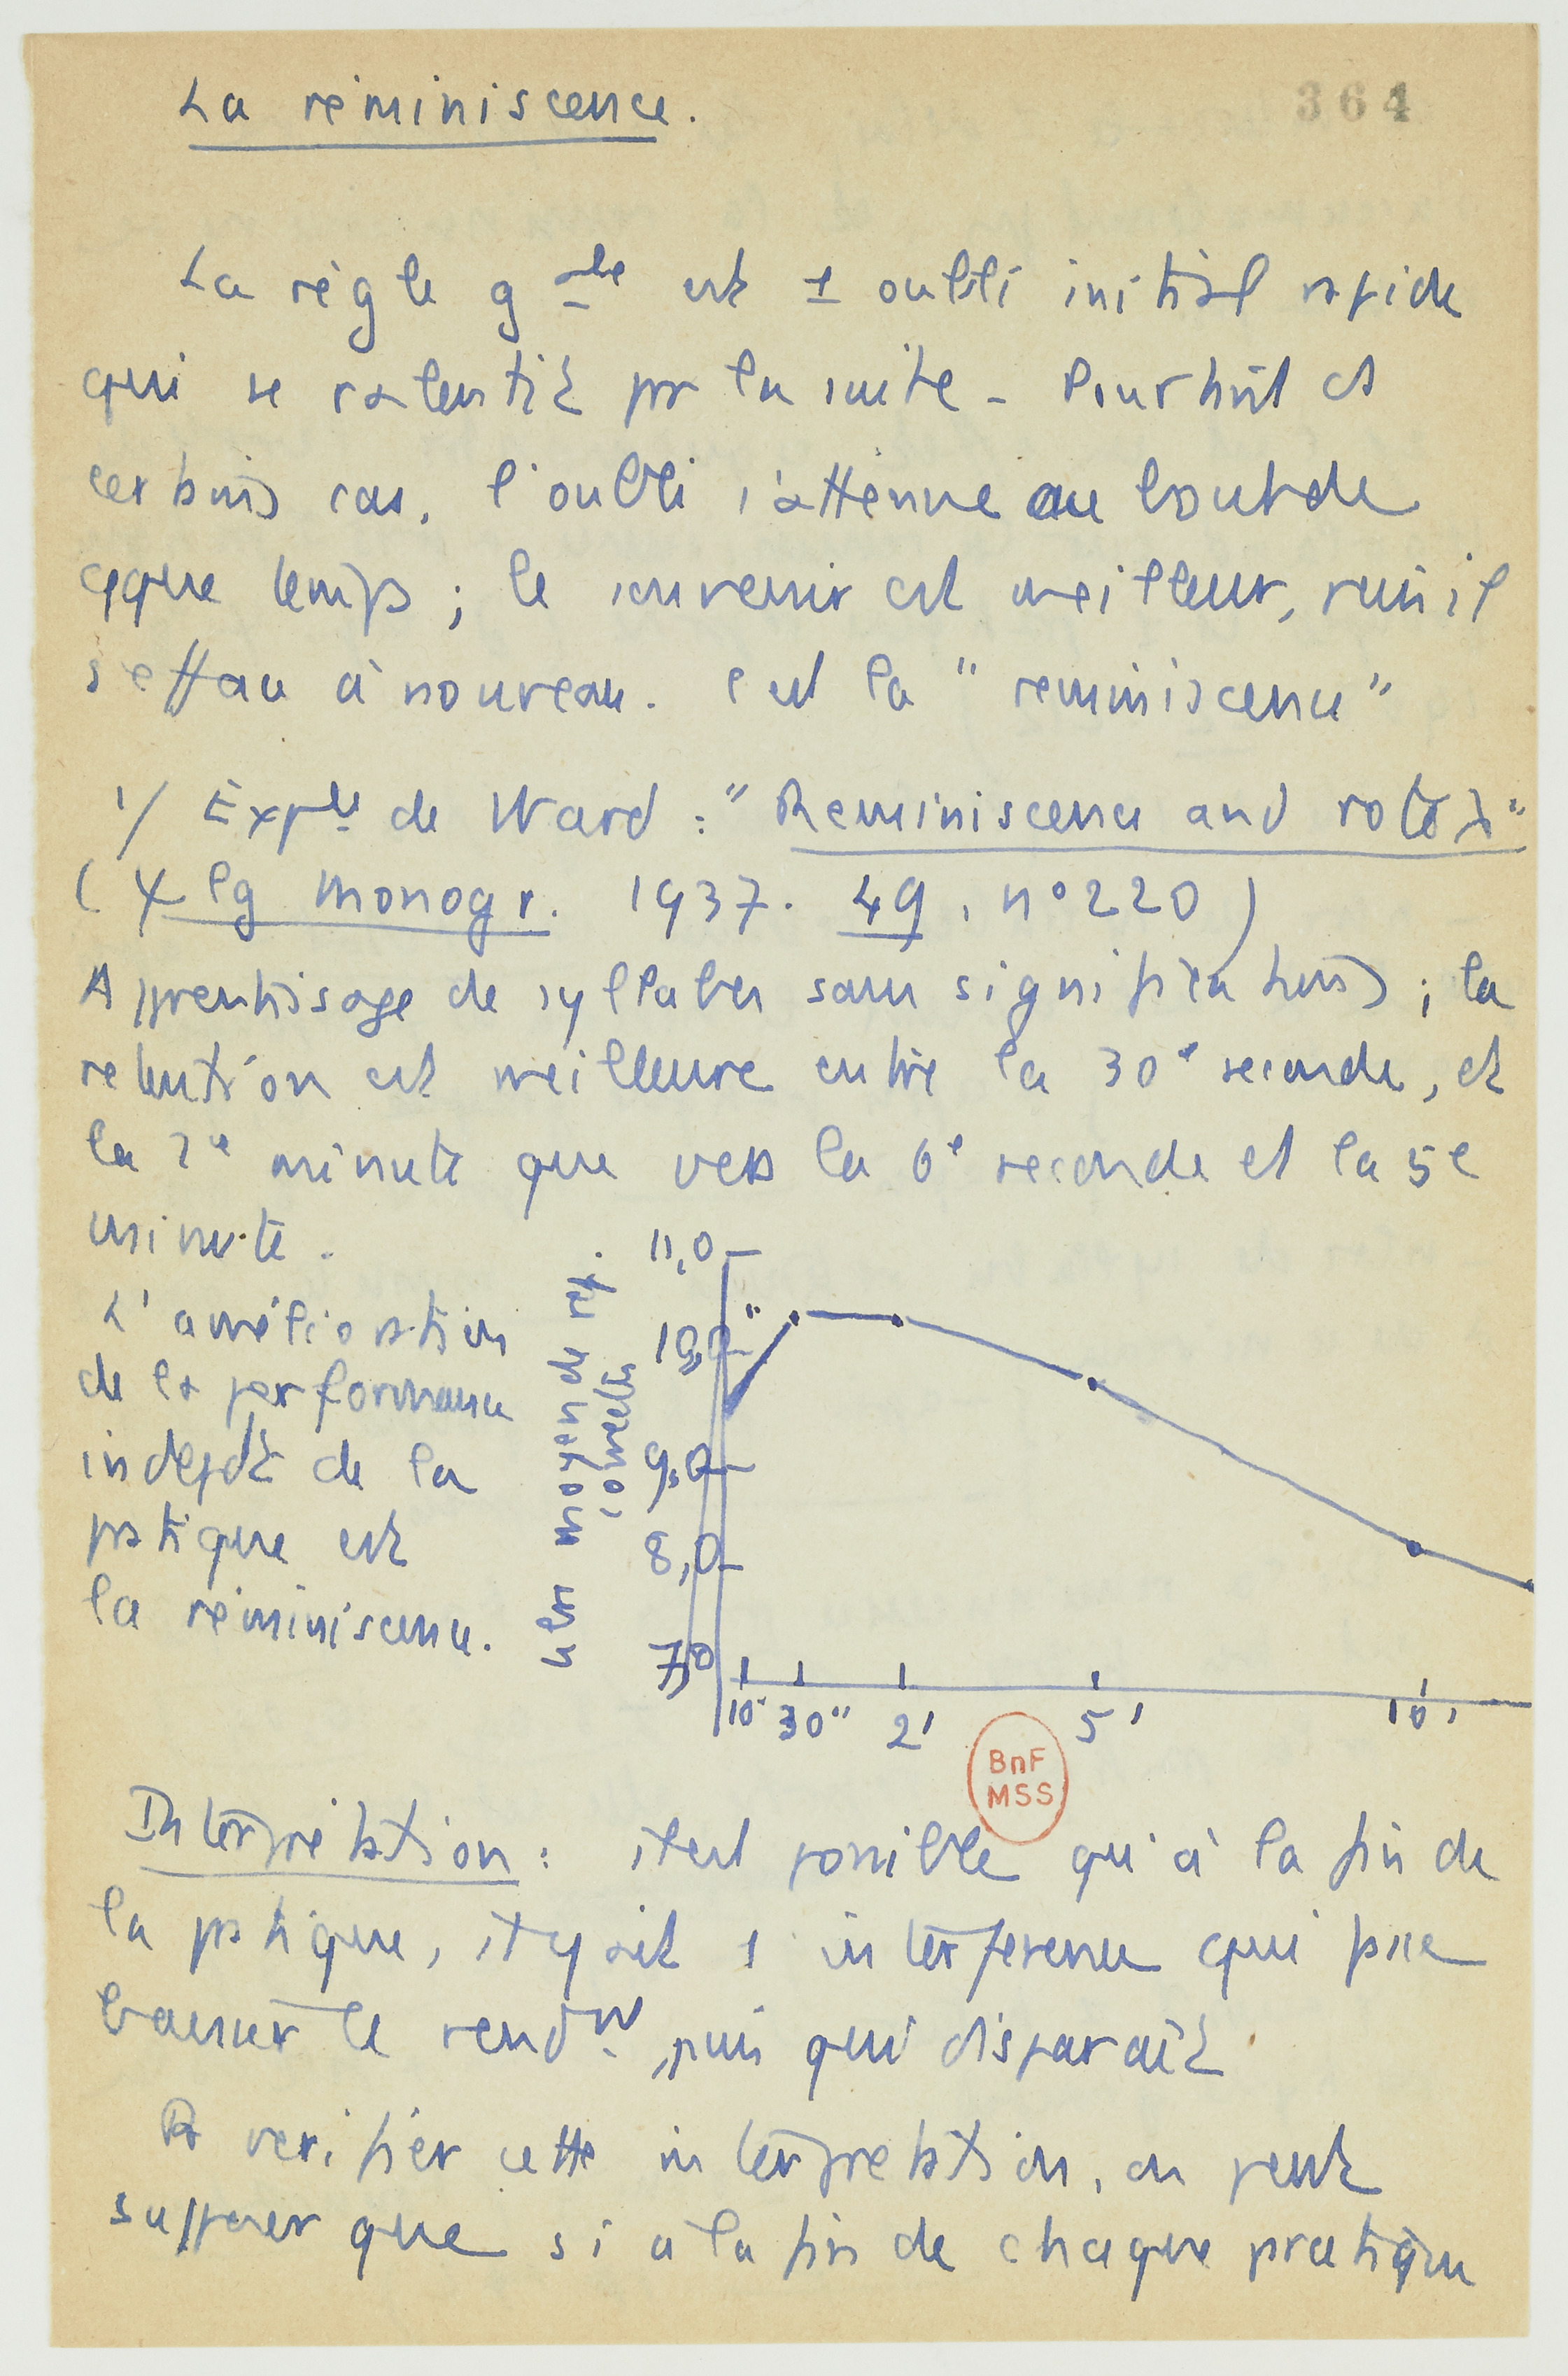 La réminiscence.
364
La règle gale est 1 oubli initial rapide
qui se ralentit par la suite – Pourtant ds
certains cas, l'oubli s'atténue au bout de
qque temps ; le souvenir est meilleur, puis il
s'efface à nouveau. C'est la "réminiscence"
1/ Exple de Ward : "Reminiscence and rote"
( Ψ lg monogr. 1937. 49, n° 220 )
Apprentissage de syllabes sans significations ; la
retention est meilleure entre la 30e seconde, et
la 2e minute que vers la 6e seconde et la 5e
minute.
L'amélioration
de la performance
indepdt de la
pratique est
la réminiscence.
nbr moyen de rép.
correctes
11,0
10,0
9,0
8,0
7,0
10" 30" 2' 5' 10'
BnF
MSS
Interprétation : il est possible qu'à la fin de
la pratique, il y ait 1 interférence qui fasse
baisser le rendt, puis qui disparaît
Pr verifier cette interprétation, on peut
supposer que si à la fin de chaque pratique